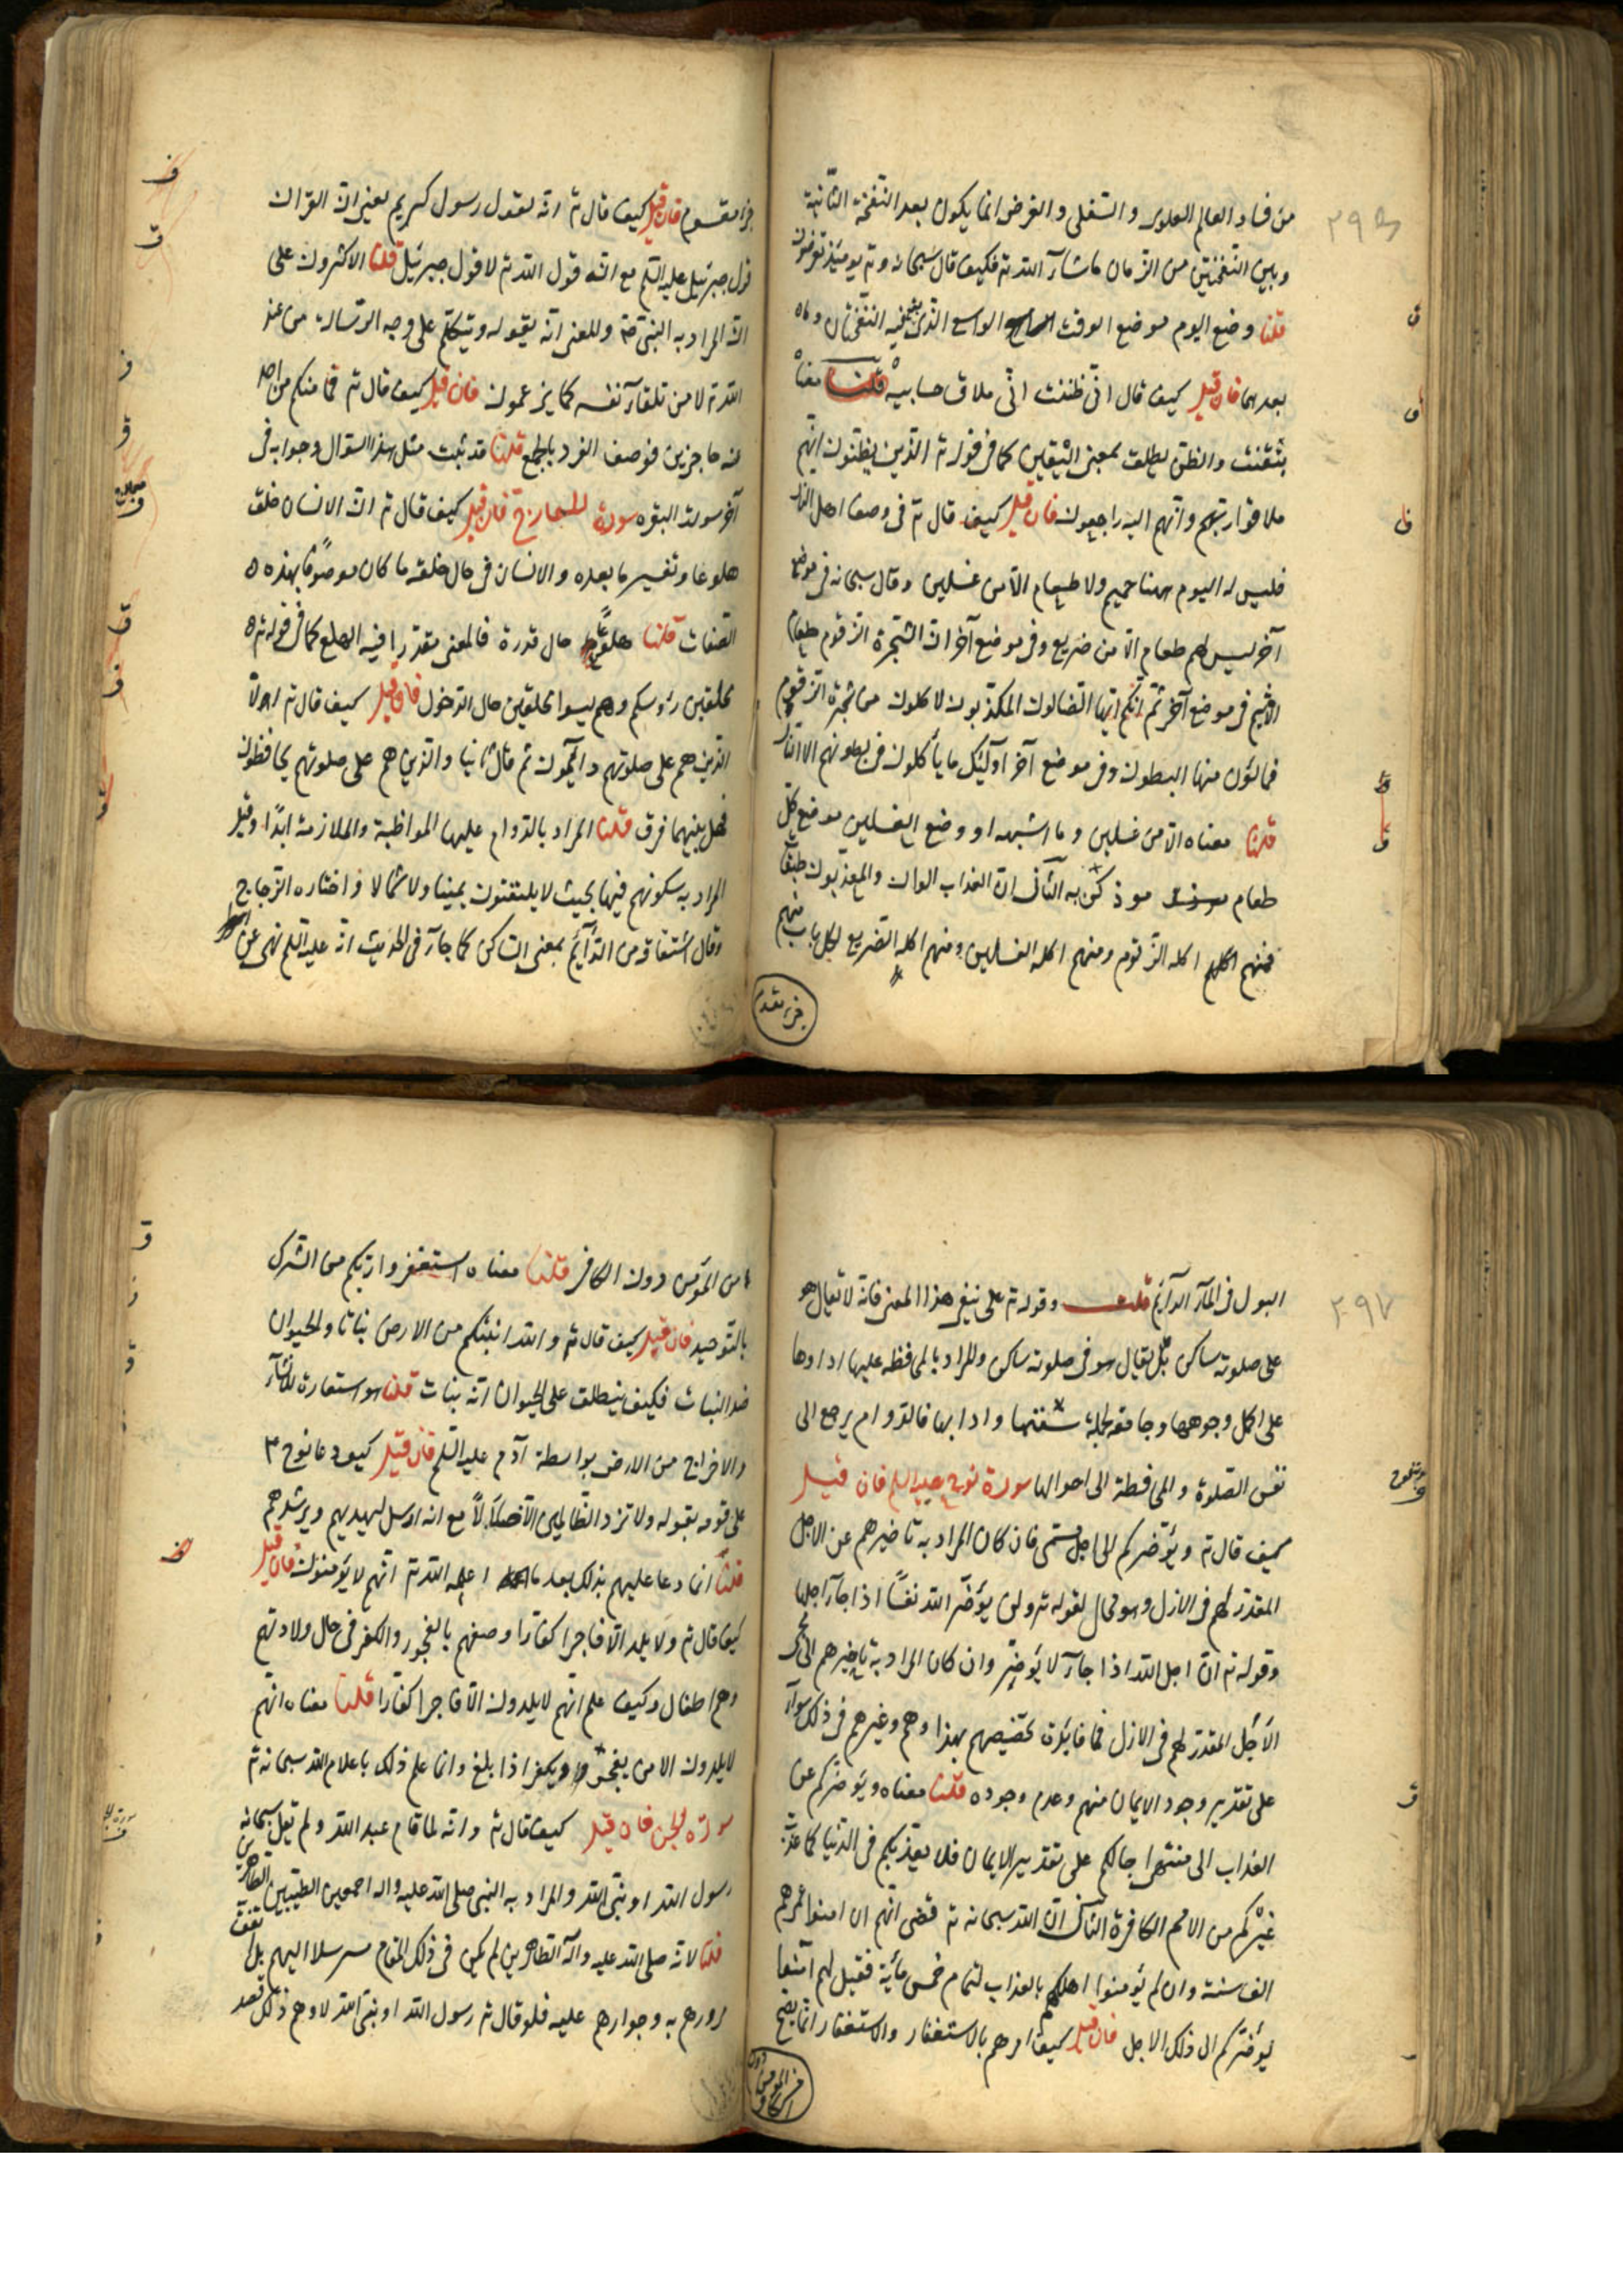 من فساد العالم العلوى و السفلى و الغرض انما يكون بعد النفخة الثانية
و بين النفختين من الزمان ما شآء الله تع فكيف قال سبحانه و تع يومئذ تعرضون
قلنا وضع اليوم موضع الوقت الواسع الذى يقع فيه النفختان وما
بعدهما فان قيل كيف قال انى ظننت انى ملاق حسابيه قلنا معناه
تيقنت والظن يطلق بمعنى اليقين كما فى قوله تع الذين يظنون انهم
ملاقوا ربهم وانهم اليه راجعون فان قيل كيف قال تع فى وصف اهل النار
فليس له اليوم ههنا حميم ولا طعام الا من غسلين وقال سبحانه فى موضع
آخر ليس لهم طعام الا من ضريع وفى موضع آخر ان الشجرة الزقوم طعام
الاثيم فى موضع آخر ثم انكم ايها الضالون المكذبون لاكلون من شجرة الزقوم
فمالئون منها البطون وفى موضع آخر اولئك ما يأكلون فى بطونهم الا النار
قلنا معناه الا من غسلين وما اشبهه او وضع الغسلين موضع كل
طعام موذ كريه الثانى ان العذاب الوان والمعذبون طبقات
فمنهم اكلة الزقوم ومنهم اكلة الغسلين ومنهم اكلة الضريع لكل باب منهم
جزء مقسوم
٢٩٦
جزء مقسوم فان قيل كيف قال تع انه لقول رسول كريم يعنى ان القران
قول جبرئيل عليه السلم مع انه قول الله تع لا قول جبرئيل قلنا الاكثرون على
ان المراد به النبى ص والمعنى انه يقوله ويتكلم على وجه الرسالة من عند
الله تع لا من تلقآء نفسه كما يزعمون فان قيل كيف قال تع فما منكم من احد
عنه حاجزين فوصف الفرد بالجمع قلنا قد ثبت مثل هذا السوال وجوابه فى
آخر سورة البقره سورة المعارج فان قيل كيف قال تع ان الانسان خلق
هلوعا وتفسيره ما بعده والانسان فى حال خلقه ما كان موصوفا بهذه
الصفات قلنا هلوعا حال مقدرة فالمعنى مقدرا فيه الهلع كما فى قوله تع
محلقين رؤسكم وهم ليسوا محلقين حال الدخول فان قيل كيف قال تع اولا
الذين هم على صلوتهم دآئمون ثم قال ثانيا والذين هم على صلوتهم يحافظون
فهل بينهما فرق قلنا المراد بالدوام عليها المواظبة والملازمة ابدًا وقيل
المراد به سكونهم فيها بحيث لا يلتفتون يمينا ولا شمالا واختاره الزجاج
وقال اشتقاقه من الدآئم بمعنى الساكن كما جآء فى الحديث انه عليه السلم نهى عن
البول فى المآء الدآئم قلت وقوله تع على ينفى هذا المعنى فانه لا يقال هو
على صلوته ساكن بل يقال هو فى صلوته ساكن والمراد بالمحافظة عليها اداؤها
على اكمل وجوهها وجامعة لجملة سننها وادابها فالدوام يرجع الى
نفس الصلوة والمحافظة الى احوالها سورة نوح عليه السلم فان قيل
كيف قال تع ويؤخركم الى اجل مسمى فان كان المراد به تاخيرهم عن الاجل
المقدر لهم فى الازل وهو محال لقوله تع ولن يؤخر الله نفسًا اذا جآء اجلها
وقوله تع ان اجل الله اذا جآء لا يؤخر وان كان المراد به تاخيرهم الى مجى
الاجل المقدر لهم فى الازل فما فائدة تخصيصهم بهذا وهم وغيرهم فى ذلك سوآء
على تقدير وجود الايمان منهم وعدم وجوده قلنا معناه ويؤخركم عن
العذاب الى منتهى اجالكم على تقدير الايمان فلا يعذبكم فى الدنيا كما عذب
غيركم من الامم الكافرة الثانى ان الله سبحانه تع قضى انهم ان امنوا عمرهم
الف سنة وان لم يؤمنوا اهلكهم بالعذاب لتمام خمس مأية فقيل لهم آمنوا
يؤخركم الى ذلك الاجل فان قيل كيف امرهم بالاستغفار والاستغفار انما يصح
من المؤمن دون الكافر
٢٩٧
سورة نوح
من المؤمن دون الكافر قلنا معناه استغفروا ربكم من الشرك
بالتوحيد فان قيل كيف قال تع والله انبتكم من الارض نباتا والحيوان
ضد النبات فكيف ينطلق على الحيوان انه نبات قلنا هو استعارة للانشآء
والاخراج من الارض بواسطة آدم عليه السلم فان قيل كيف دعا نوح ع
على قومه بقوله ولا تزد الظالمين الا ضلالًا مع انه ارسل ليهديهم ويرشدهم
قلنا انما دعا عليهم بذلك بعد ما اعلمه الله تع انهم لا يؤمنون فان قيل
كيف قال تع ولا يلدوا الا فاجرا كفارا وصفهم بالفجور والكفر فى حال ولادتهم
وهم اطفال وكيف علم انهم لا يلدون الا فاجرا كفارا قلنا معناه انهم
لا يلدون الا من يفجر ويكفر اذا بلغ وانما علم ذلك باعلام الله سبحانه تع
سورة الجن فان قيل كيف قال تع وانه لما قام عبد الله ولم يقل سبحانه
رسول الله او نبى الله والمراد به النبى صلى الله عليه واله اجمعين الطيبين الطاهرين
قلنا لانه صلى الله عليه وآله الطاهرين لم يكن فى ذلك المقام مرسلا اليهم بل اتفق
مرورهم به وجوازهم عليه فلو قال تع رسول الله او نبى الله لاوهم ذلك قصد